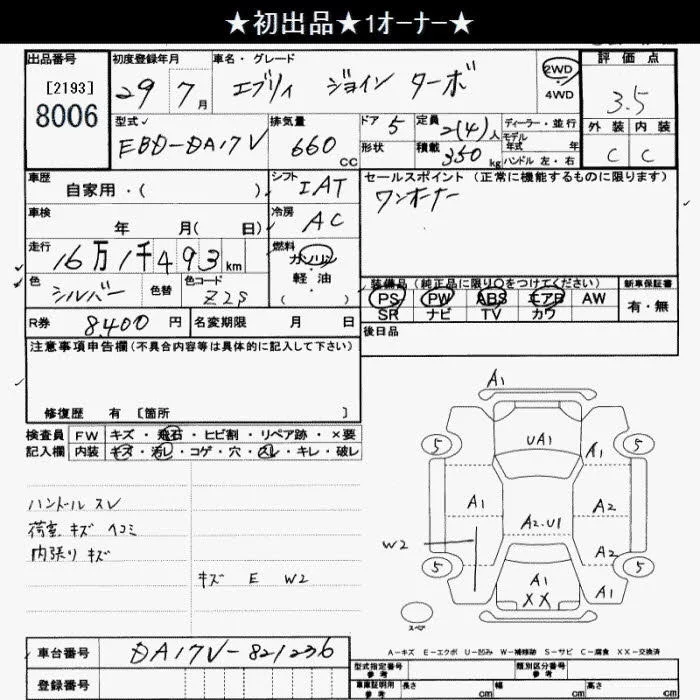 ★初出品★1オーナー★
出品番号 初度登録年月 車名・グレード 2WD 4WD 評価点
[2193]
8006
29年 7月 エブリィ ジョイン ターボ 3.5
型式 排気量 ドア 5 定員 2(4)人 ディーラー・並行
EBD-DA17V 660cc 形状 積載 350kg モデル年式 年 ハンドル 左・右
外装 内装
C C
車歴 自家用・( ) シフト IAT セールスポイント (正常に機能するものに限ります)
ワンオーナー
車検 年 月( 日) 冷房 AC
走行 16万1千493km 燃料 ガソリン 軽油 ( )
色 シルバー 色替 色コード Z2S
装備品(純正品に限り○をつけてください) 新車保証書
PS PW ABS エアB AW 有・無
SR ナビ TV カワ
R券 8400円 名変期限 月 日
後日品
注意事項申告欄(不具合内容等は具体的に記入して下さい)
修復歴 有 [箇所 ]
検査員 FW キズ・飛石・ヒビ割・リペア跡・×要
記入欄 内装 キズ・汚レ・コゲ・穴・スレ・キレ・破レ
ハンドル スレ
荷室 キズ ヘコミ
内張り キズ
キズ E W2
A1
5 UA1 A1 5
A1 A2
A2.U1
W2 A2
5 A1 5
XX A1
スペア
A-キズ E-エクボ U-凹み W-補修跡 S-サビ C-腐食 XX-交換済
車台番号 DA17V-821236
型式指定番号 参考 類別区分番号 参考
登録番号 車庫証明用 参考 長さ cm 幅 cm 高さ cm